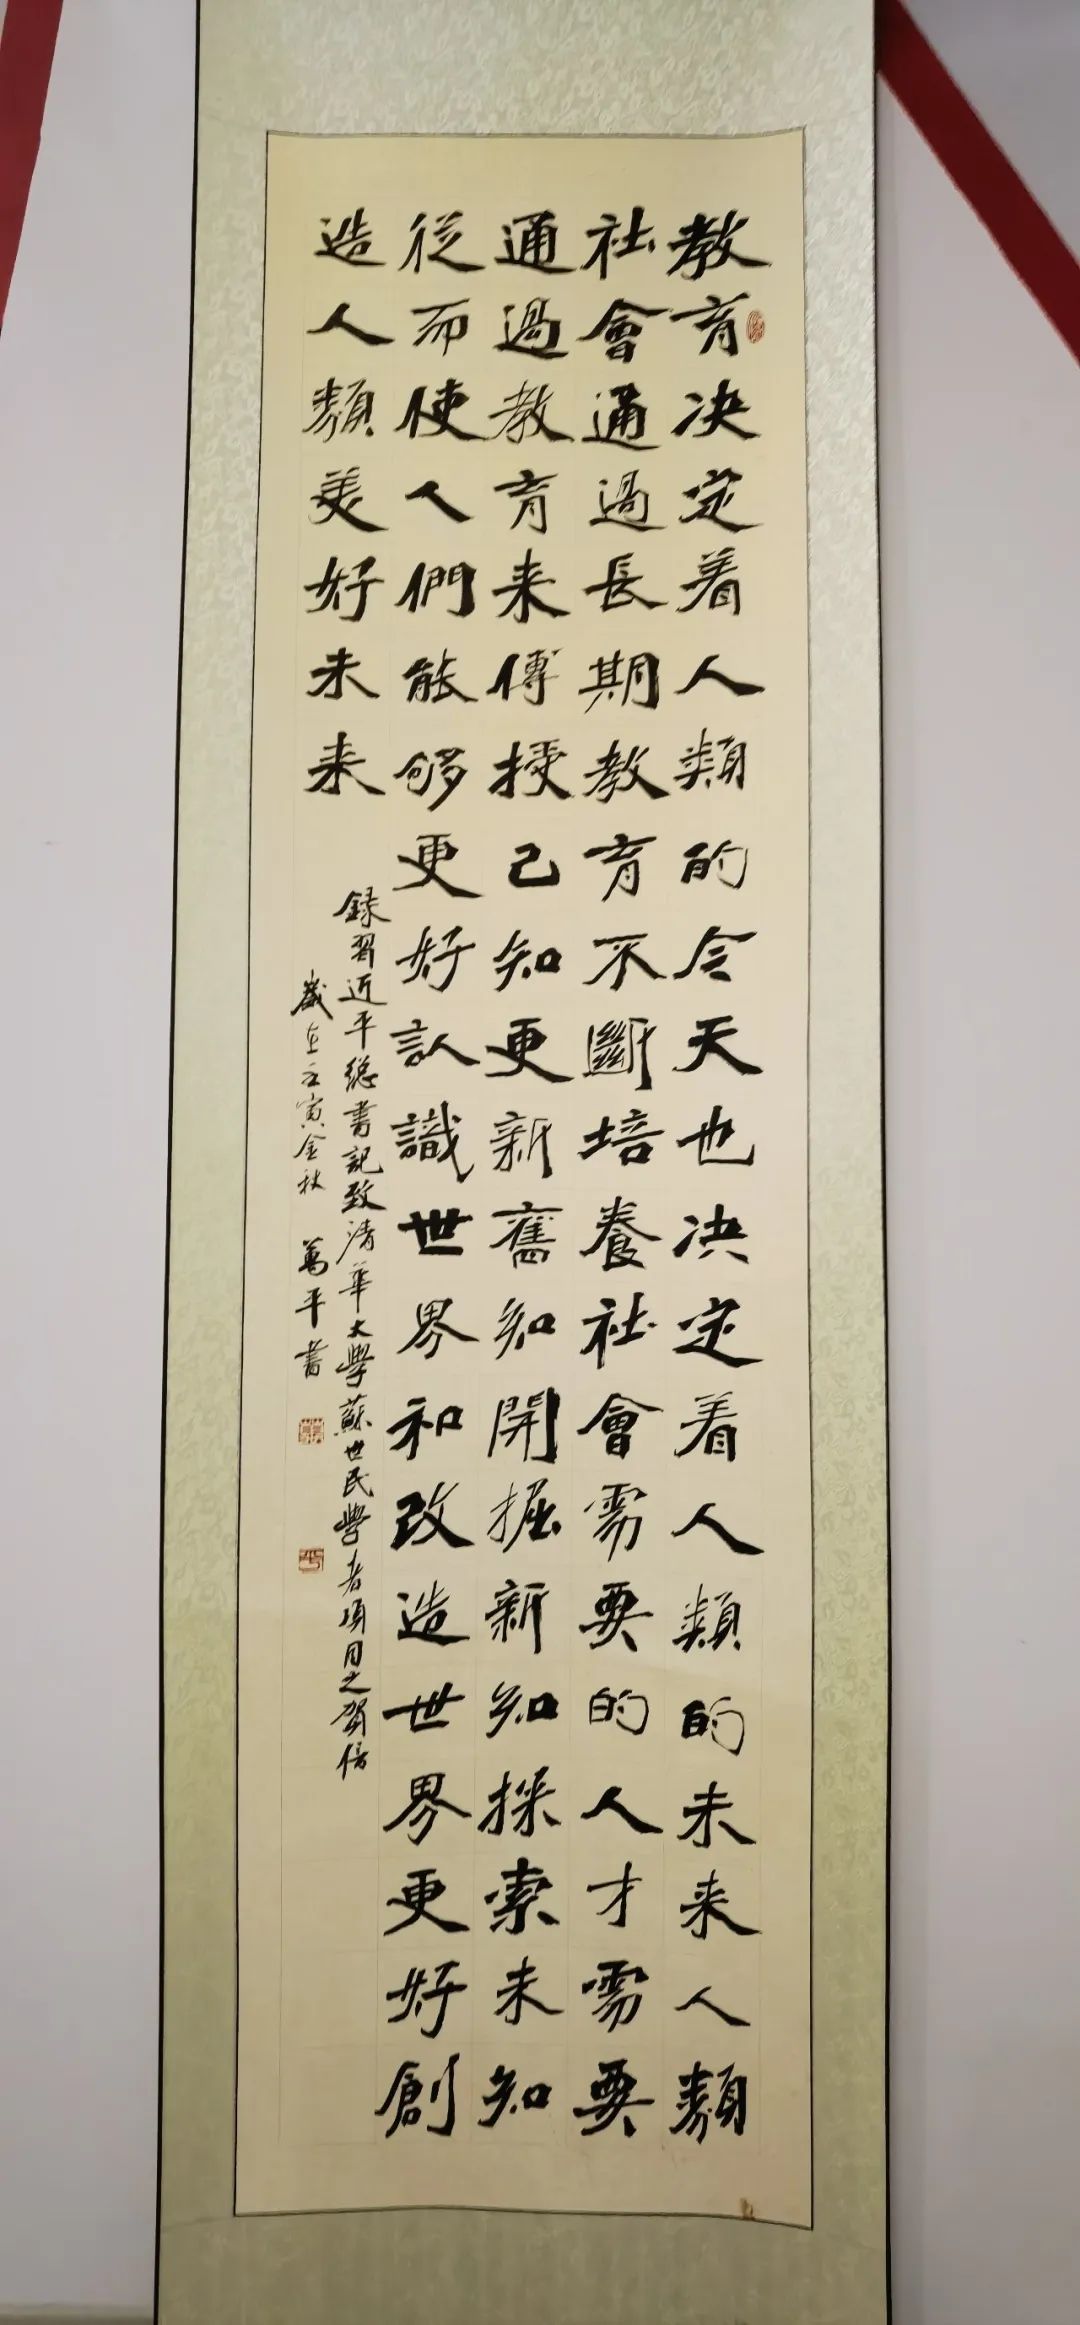 教育决定着人類的今天也决定着人類的未来人類
社會通過長期教育不斷培養社會需要的人才需要
通過教育来傳授已知更新舊知開掘新知探索未知
從而使人們能够更好認識世界和改造世界更好創
造人類美好未来
録習近平總書記致清華大學蘇世民學者項目之賀信
歲在壬寅金秋 萬平書